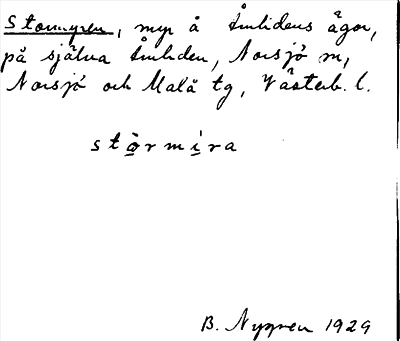 Stormyren, myr å Åmlidens ägor,
på själva Åmliden, Norsjö sn,
Norsjö och Malå tg, Västerb. l.
stòrmìra
B. Nygren 1929